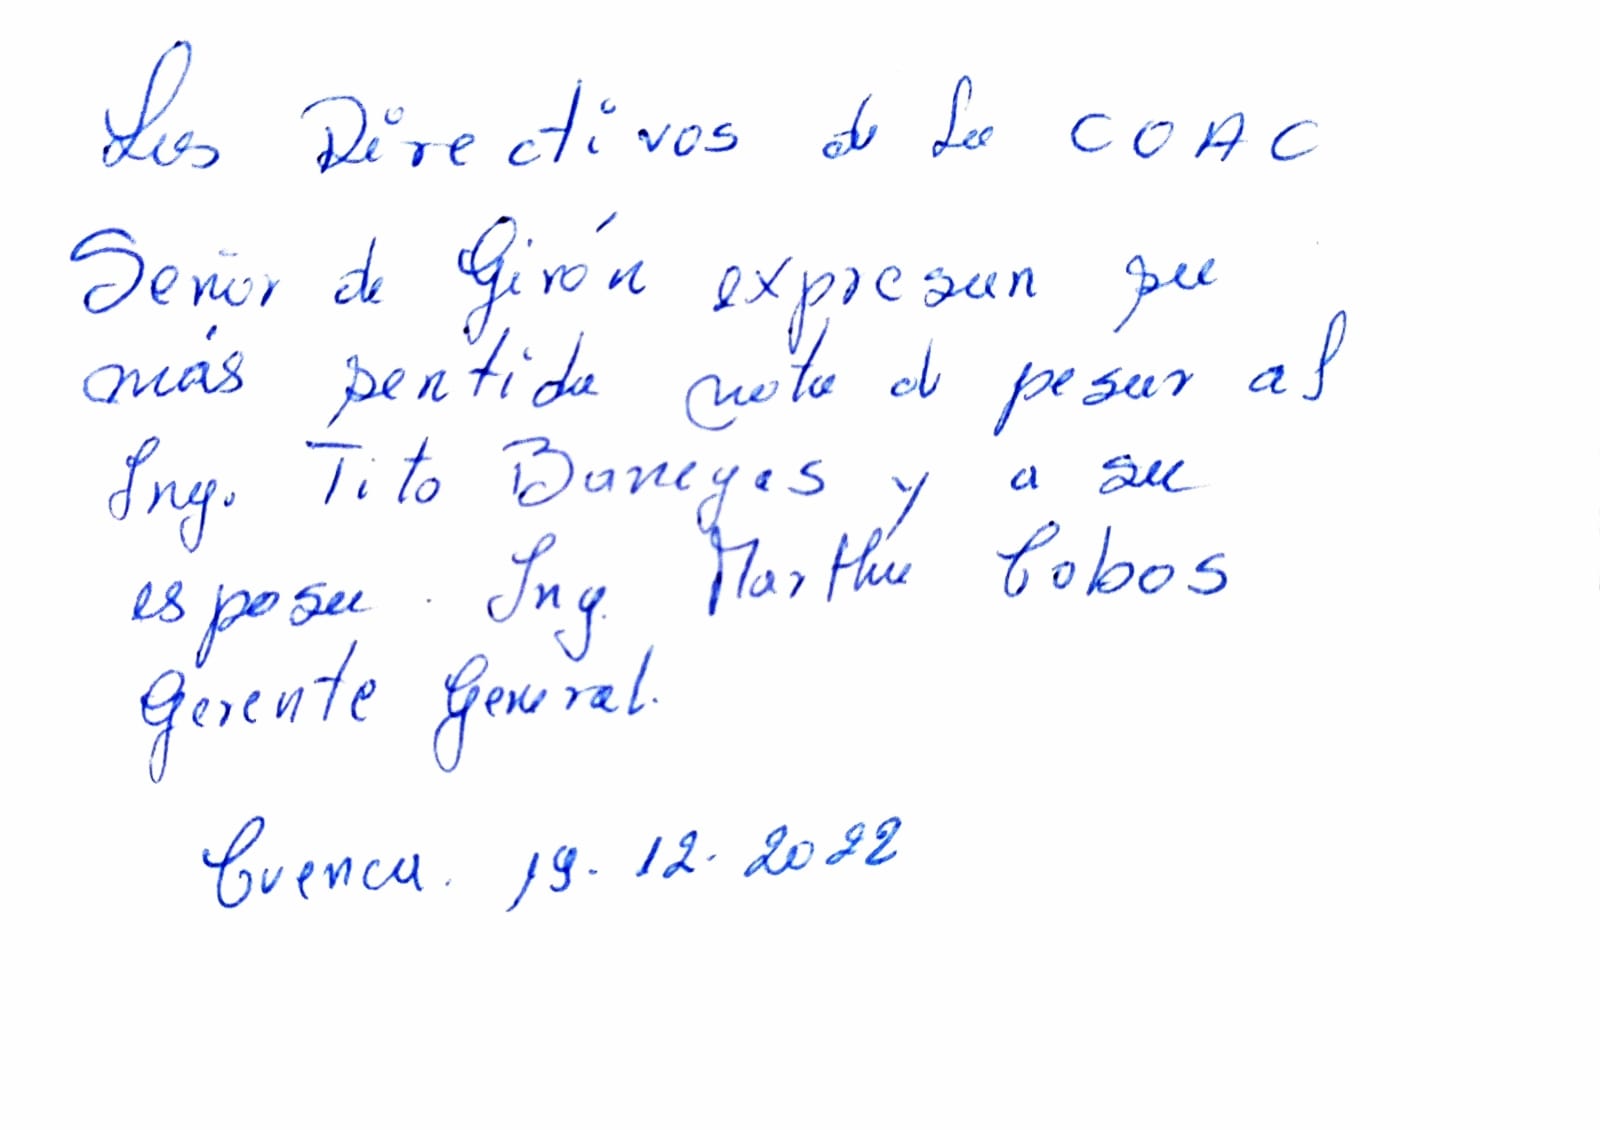 Los Directivos de La COAC
Señor de Girón expresan su
más sentida nota d pesar al
Ing. Tito Banegas y a su
esposa. Ing. Martha Cobos
Gerente General.
Cuenca. 19. 12. 2022